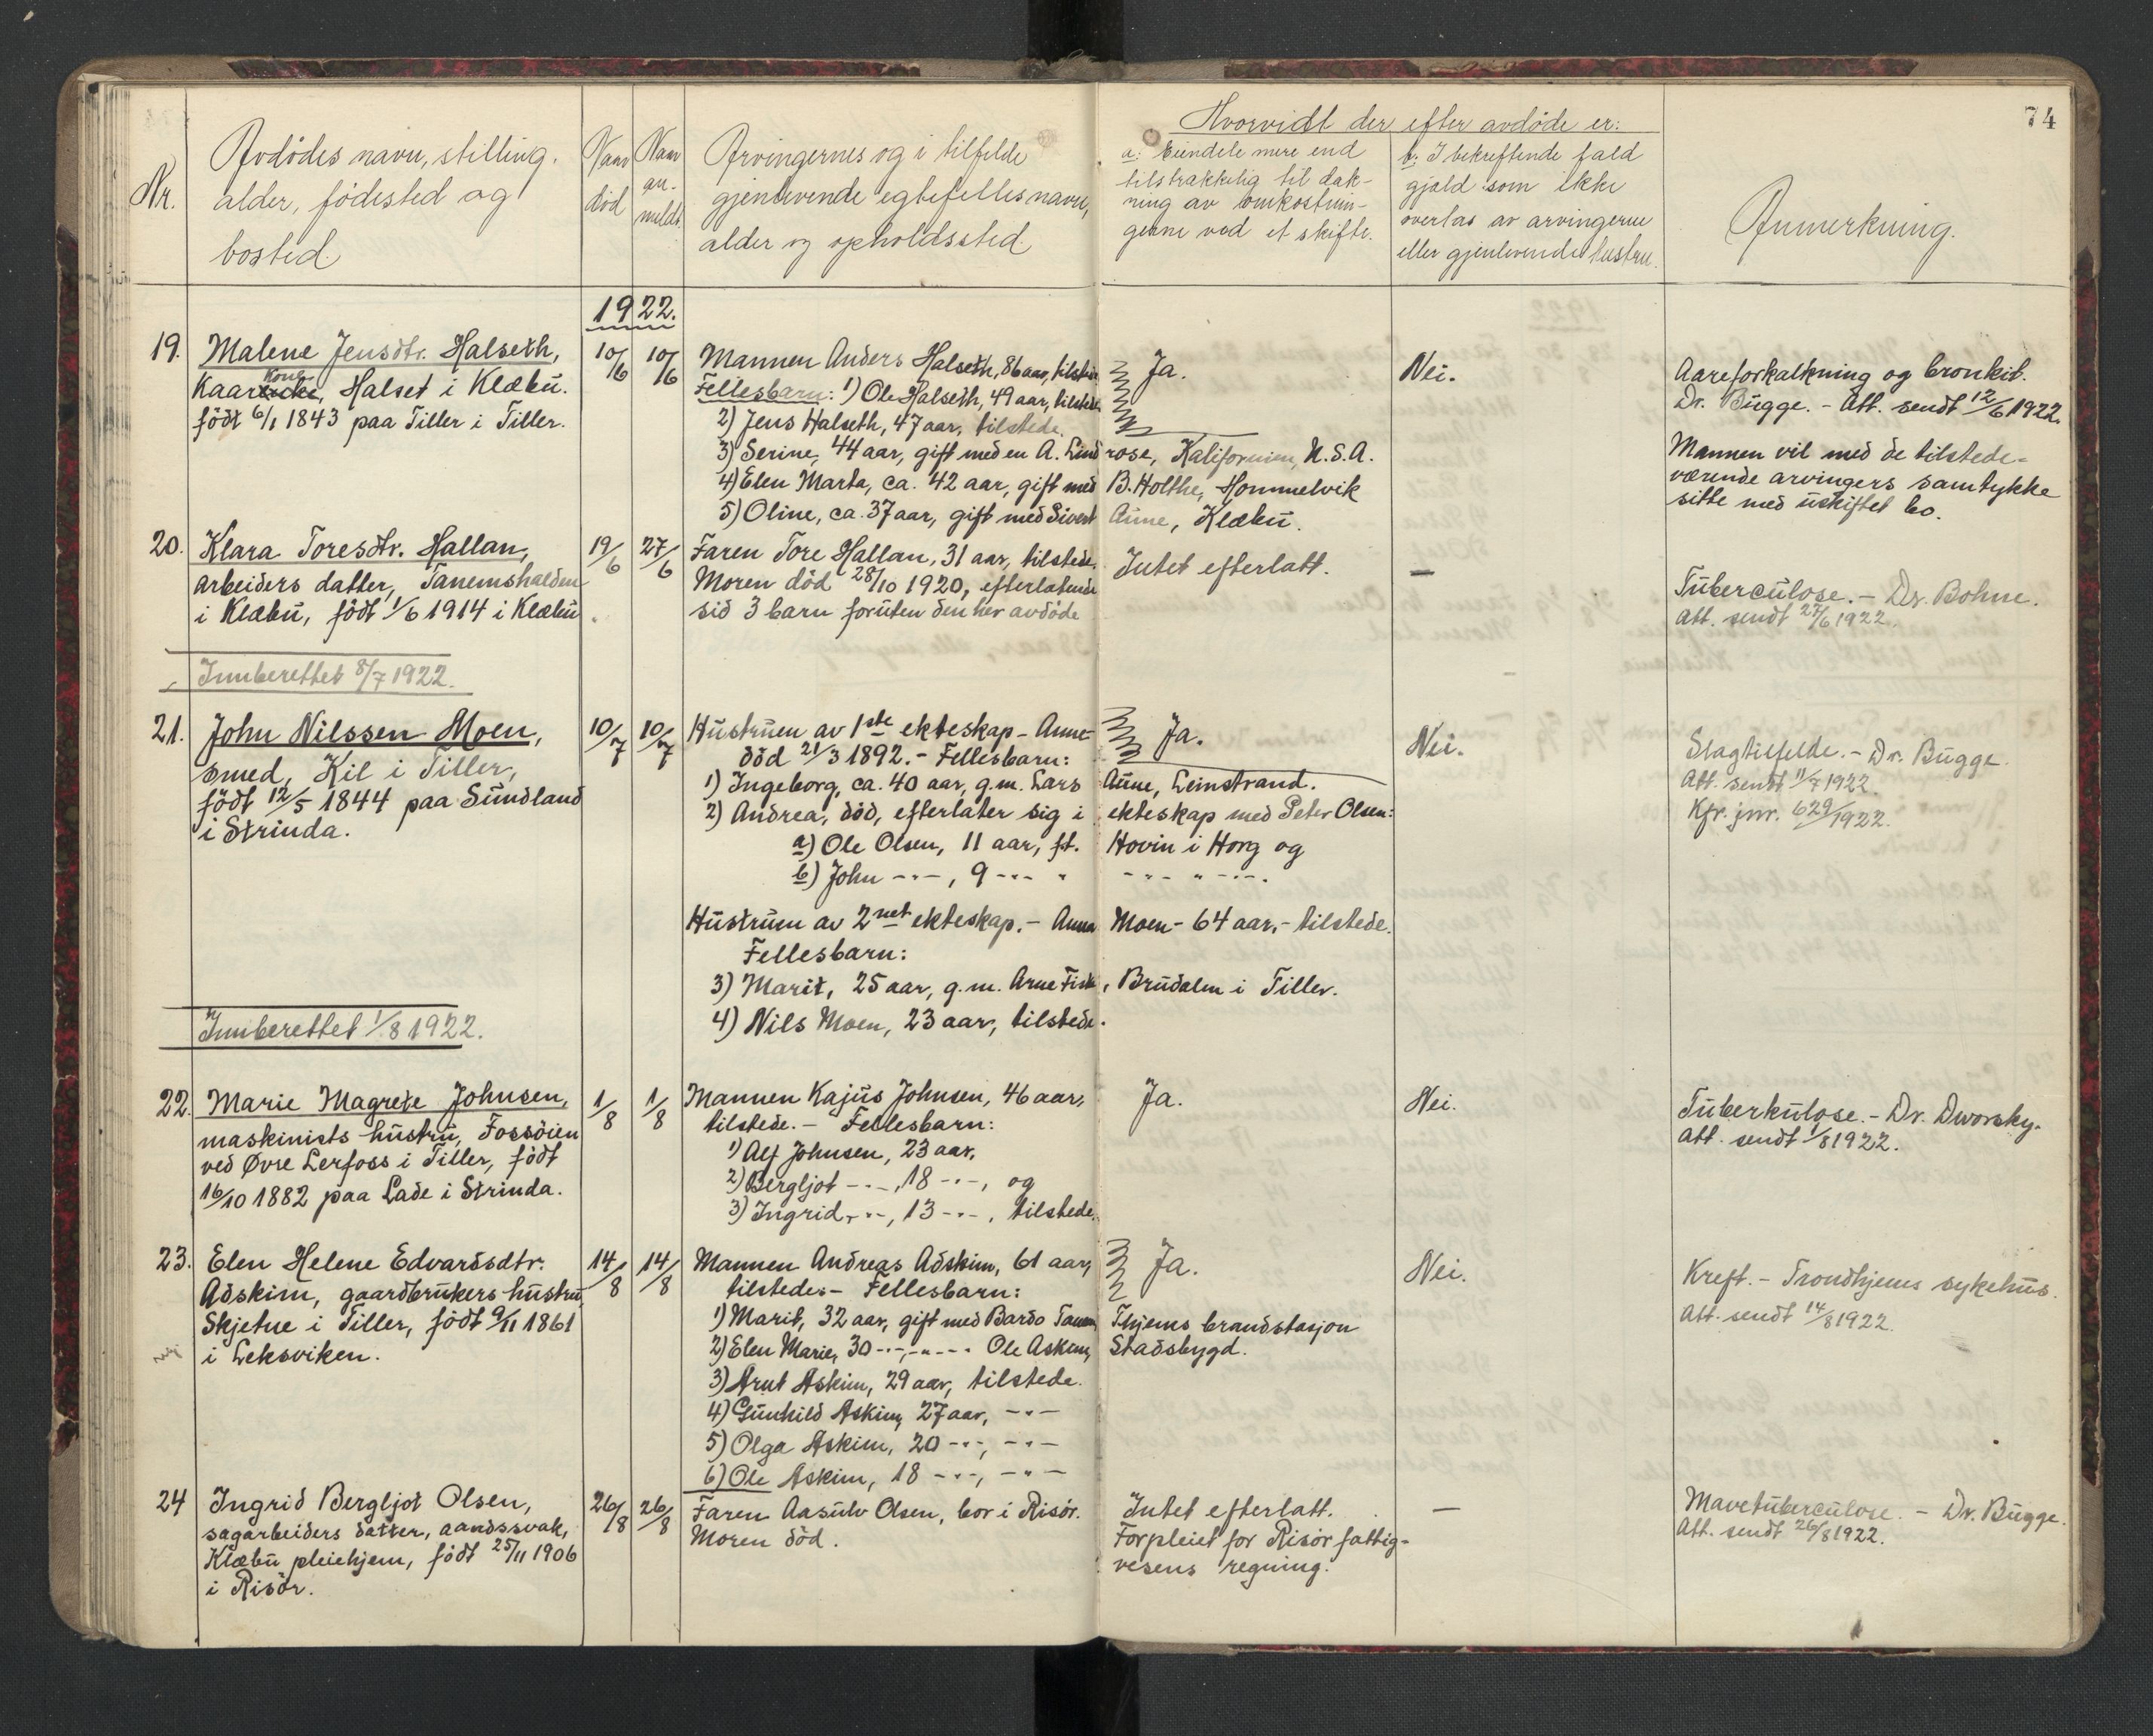 74
Nr.
Avdödes navn, stilling.
alder, födested og
bosted.
Naar
död
Naar
an-
meldt.
Arvingernes og i tilfelde
gjenlevende egtefelles navn,
alder og opholdssted
Hvorvidt der efter avdöde er:
a: Eiendele mere end
tilstrakkelig til dæk-
ning av omkostnin-
gerne ved et skifte.
b: I bekreftende fald
gjæld som ikke
overtas av arvingerne
eller gjenlevende hustru.
Anmerkning.
1922.
19. Malene Jensdtr. Halseth,
Kone
Kaar, Halset i Klæbu.
födt 6/1 1843 paa Tiller i Tiller.
10/6 10/6
Mannen Anders Halseth, 86 aar, tilstede
Fellesbarn: 1) Ole Halseth, 49 aar, tilstede
2) Jens Halseth, 47 aar, tilstede.
3) Serine, 44 aar, gift med en A. Lindrose, Kalifornien, U.S.A.
4) Elen Marta, ca. 42 aar, gift med B. Holthe, Hommelvik
5) Oline, ca. 37 aar, gift med Sivert Aune, Klæbu.
Ja.
Nei.
Aareforkalkning og bronkit.
Dr. Bugge. - Att. sendt 12/6 1922.
Mannen vil med de tilstede-
værende arvingers samtykke
sitte med uskiftet bo.
20. Klara Toresdtr. Hallan,
arbeiders datter, Tanemshalden
i Klæbu, födt 1/6 1914 i Klæbu.
19/6 27/6
Faren Tore Hallan, 31 aar, tilstede.
Moren död 28/10 1920, efterlatende
sid 3 barn foruten den her avdöde
Intet efterlatt.
—
Tuberculose. - Dr. Bohne.
Att. sendt 27/6 1922.
Innberettet 8/7 1922.
21. John Nilssen Moen,
smed, Kil i Tiller,
födt 12/5 1844 paa Sundland
i Strinda.
10/7 10/7
Hustruen av 1ste ekteskap - Anne -
död 21/3 1892. - Fellesbarn:
1) Ingeborg, ca. 40 aar, g.m. Lars Aune, Leinstrand.
2) Andrea, död, efterlater sig i ekteskap med Peter Olsen:
a) Ole Olsen, 11 aar, ft. Hovin i Horg og
b) John -"-, 9 -"- " -"- " -"-.
Hustruen av 2net ekteskap. - Anna Moen - 64 aar, - tilstede.
Fellesbarn:
3) Marit, 25 aar, g.m. Arne Fisk, Brudalen i Tiller.
4) Nils Moen, 23 aar, tilstede.
Ja.
Nei.
Slagtilfelde. - Dr. Bugge.
Att. sendt 11/7 1922.
Kfr. jnr. 629/1922.
Innberettet 1/8 1922.
22. Marie Magrete Johnsen,
maskinists hustru, Fossöien
ved Øvre Lerfoss i Tiller, födt
16/10 1882 paa Lade i Strinda.
1/8 1/8
Mannen Kajus Johnsen, 46 aar,
tilstede. - Fellesbarn:
1) Alf Johnsen, 23 aar,
2) Bergljot -"-, 18 -"-, og
3) Ingrid -"-, 13 -"-, tilstede.
Ja.
Nei.
Tuberkulose. - Dr. Dworsky.
Att. sendt 1/8 1922.
23. Elen Helene Edvardsdtr.
Adskim, gaardbrukers hustru,
Skjetne i Tiller, födt 9/11 1861
i Leksviken.
14/8 14/8
Mannen Andreas Adskim, 61 aar,
tilstede - Fellesbarn:
1) Marit, 32 aar, gift med Bardo Tanem, Thjems brandstasjon
2) Elen Marie, 30 -"-, -"- -"- Ole Askim, Stadsbygd.
3) Arnt Askim, 29 aar, tilstede.
4) Gunhild Askim, 27 aar, -"-
5) Olga Askim, 20 -"-, -"-
6) Ole Askim, 18 -"-, -"-
Ja.
Nei.
Kreft. - Trondhjems sykehus.
Att. sendt 14/8 1922.
24 Ingrid Bergljot Olsen,
sagarbeiders datter, aandssvak,
Klæbu pleiehjem, födt 25/11 1906
i Risör.
26/8 26/8
Faren Aasulv Olsen, bor i Risör.
Moren död.
Intet efterlatt.
Forpleiet for Risör fattig-
vesens regning.
—
Mavetuberculose. - Dr. Bugge.
Att. sendt 26/8 1922.